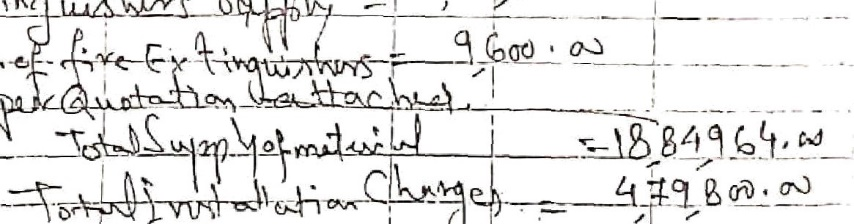 Extinguishers Supply =
ref. fire Extinguishers = 9,600.00
per Quotation attached.
Total Supply of material = 18,84,964.00
Total Installation Charges = 4,79,800.00